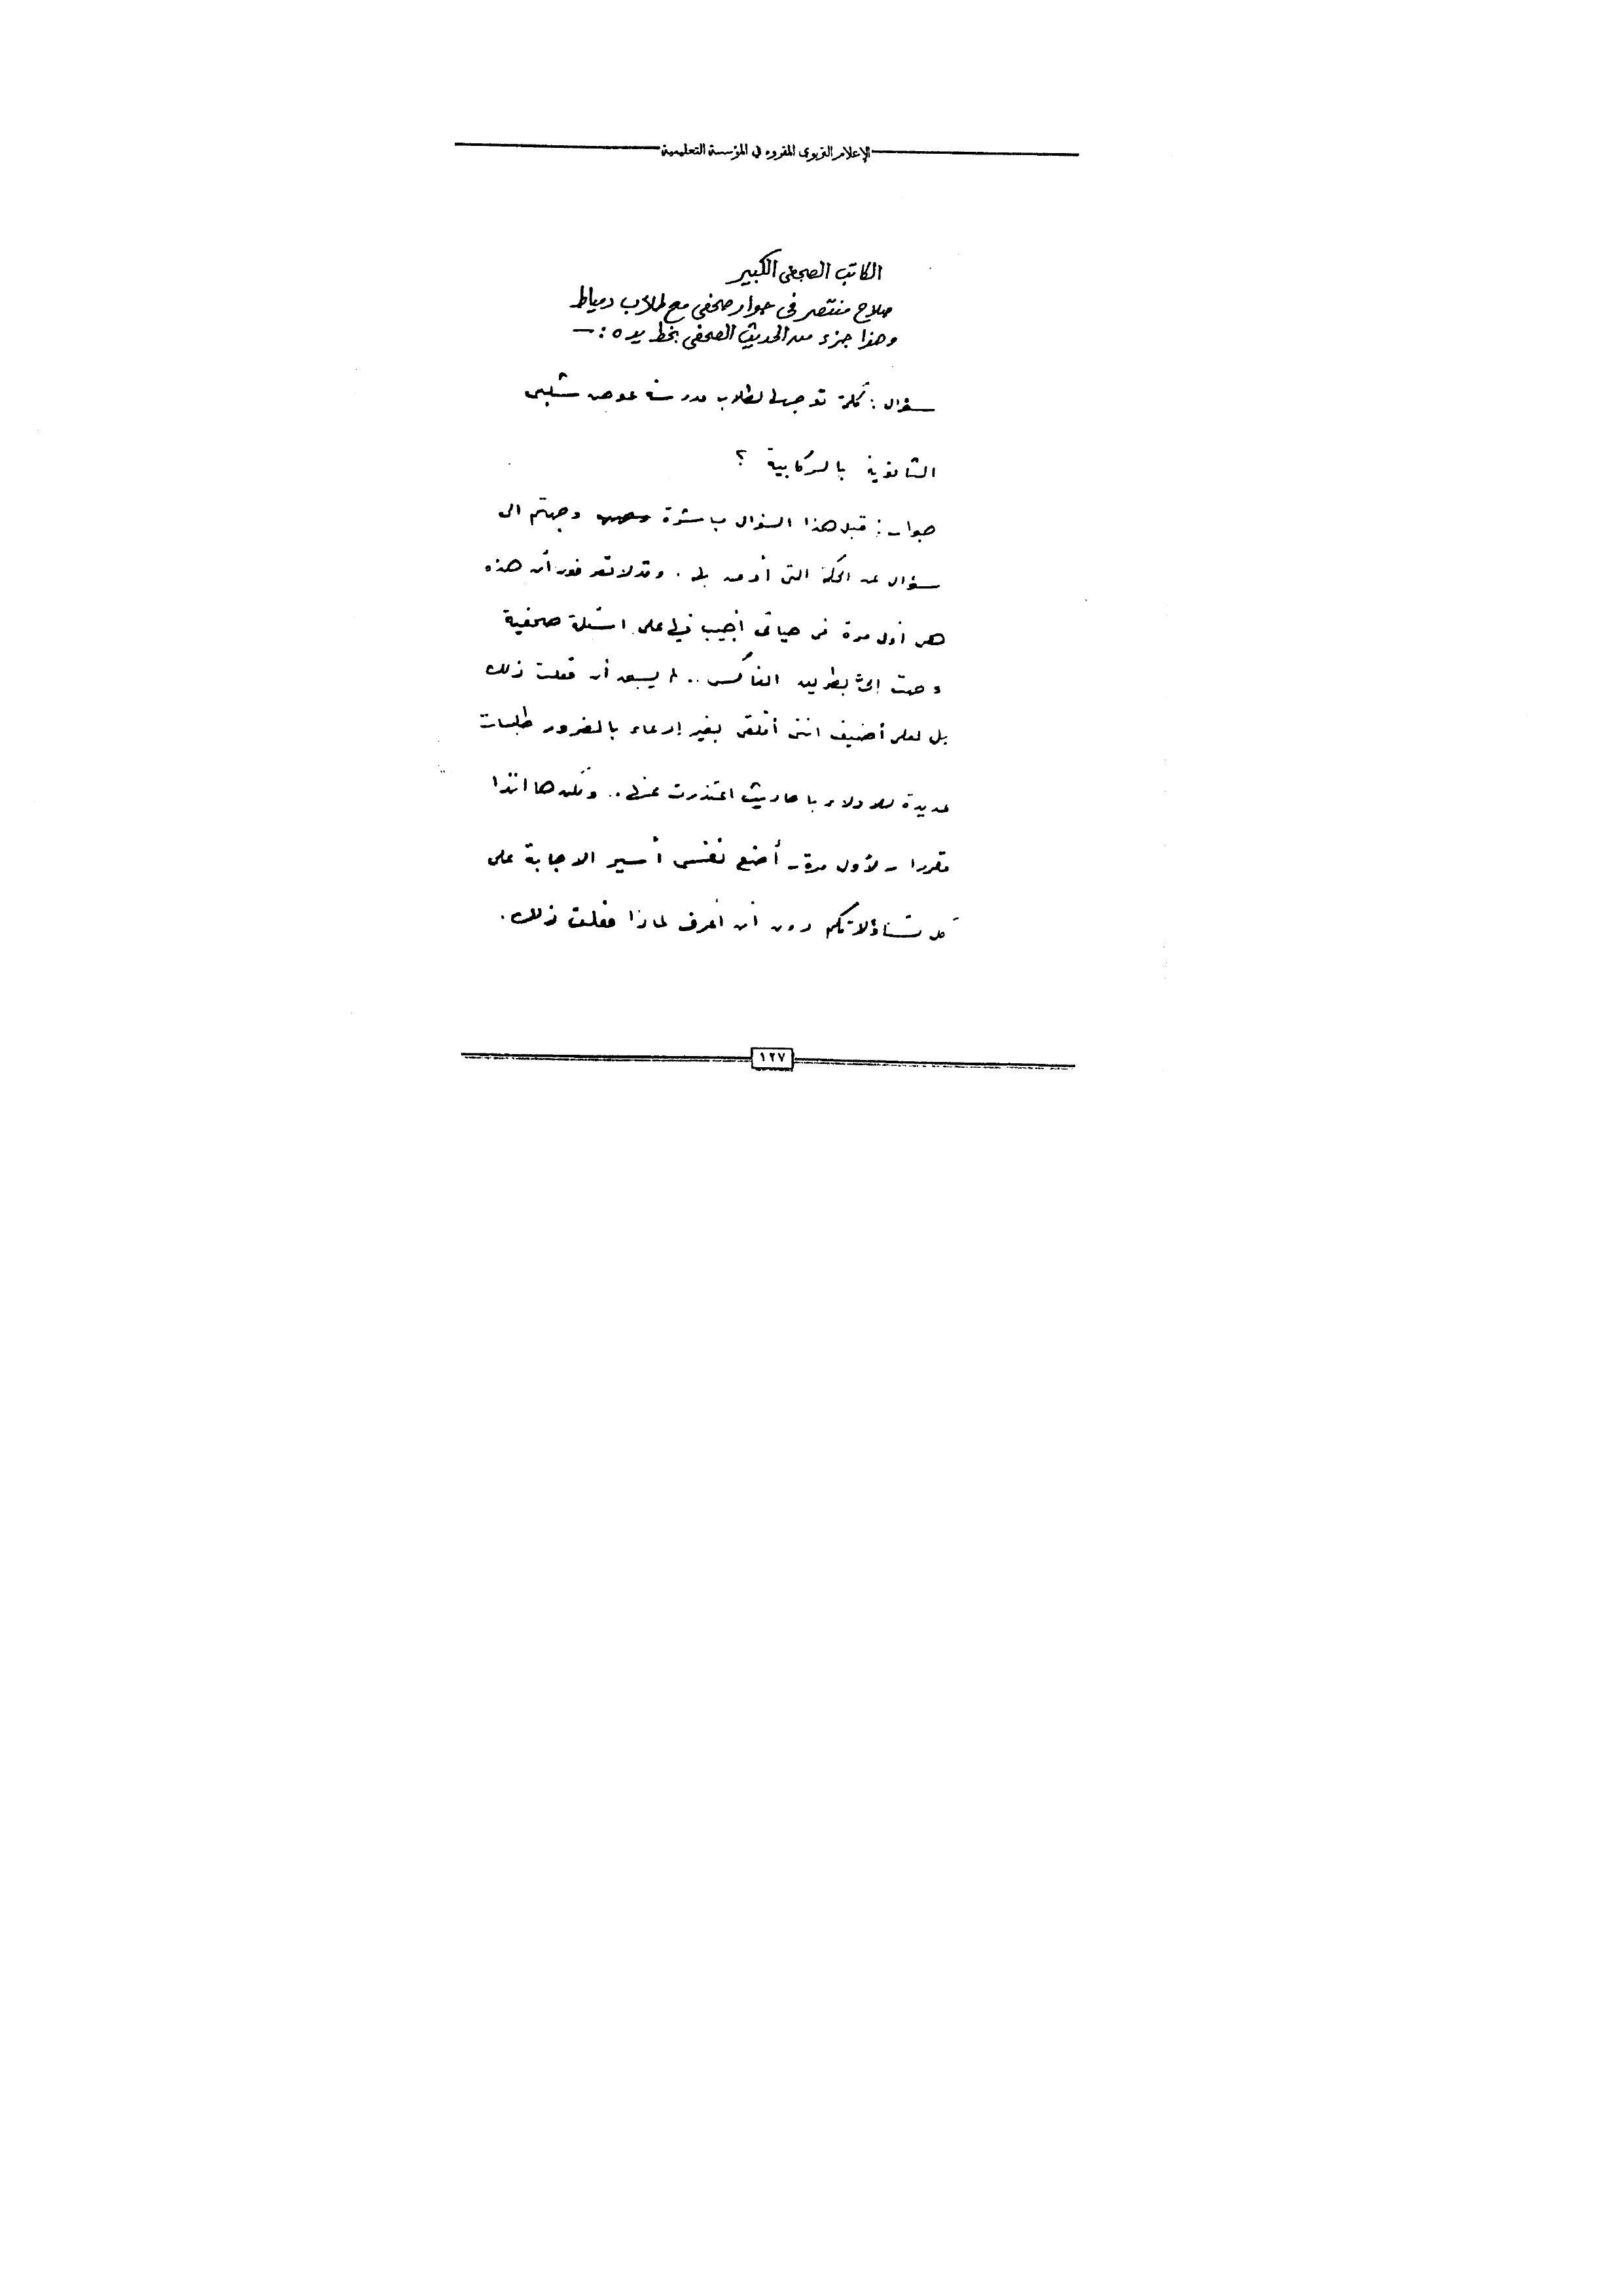 الإعلام التربوى المقروء فى المؤسسة التعليمية
الكاتب الصحفى الكبير
صلاح منتصر فى حوار صحفى مع طلاب دمياط
وهذا جزء من الحديث الصحفى بخط يده :-
سؤال : كلمة توجهها لطلاب مدرسة عوض شلبى
الثانوية بالركابية ؟
جواب : قبل هذا السؤال مباشرة وجهتم الى
سؤال عن الحكمة التى أؤمن بها . وقد لا تعرفون أن هذه
هى أول مرة فى حياتى أجيب فيها على اسئلة صحفية
وجهت الىّ بطريق الفاكس .. لم يسبق أن فعلت ذلك
بل لعلى أضيف اننى أتلقى بغير إدعاء بالغرور طلبات
عديدة للادلاء باحاديث اعتذرت عنها .. ولكن ها انذا
مقررا - لأول مرة - أضع نفسى أسير الاجابة على
كل تساؤلاتكم دون أن أعرف لماذا فعلت ذلك .
١٢٧